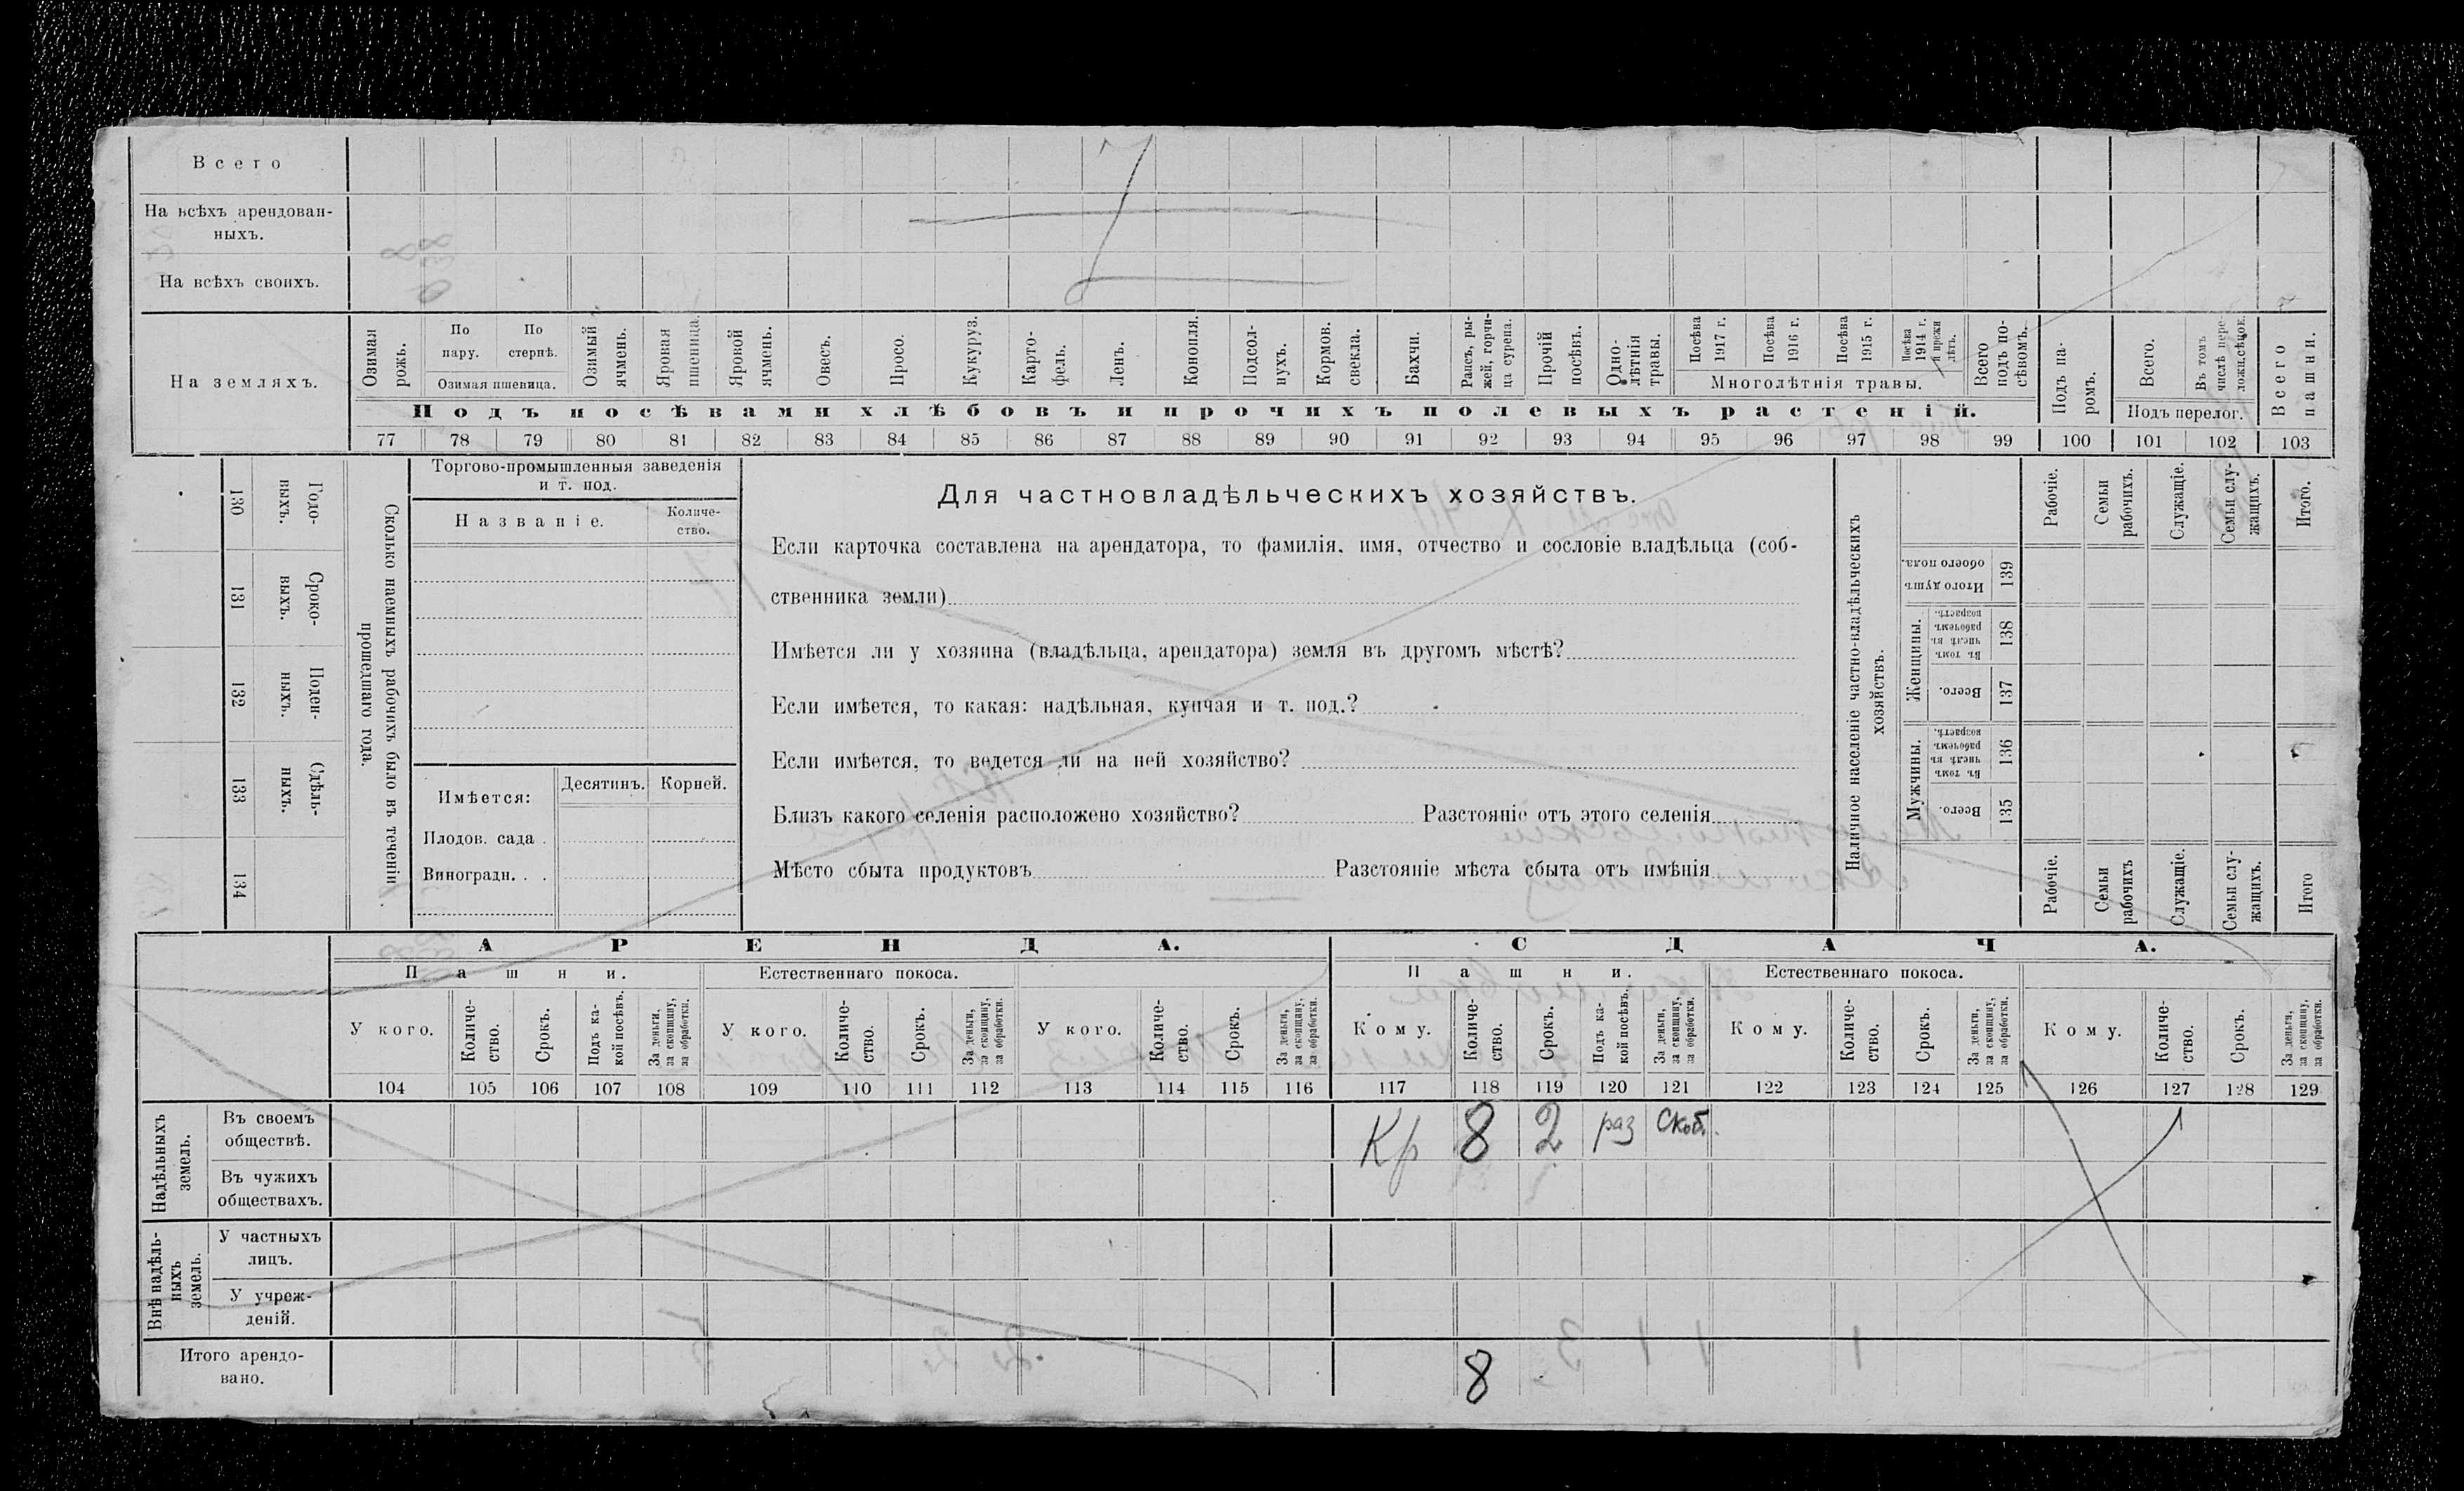 Всего
На всѣхъ арендован-
ныхъ.
На всѣхъ своихъ.
На земляхъ.
Озимая рожь.
По пару.
По стернѣ.
Озимая пшеница.
Озимый ячмень.
Яровая пшеница.
Яровой ячмень.
Овесъ.
Просо.
Кукуруз.
Карто-
фель.
Ленъ.
Конопля.
Подсол-
нухъ.
Кормов.
свекла.
Бахчи.
Рапсъ, ры-
жей, горчи-
ца сурепа.
Прочій
посѣвъ.
Одно-
лѣтнія
травы.
Посѣва
1917 г.
Посѣва
1916 г.
Посѣва
1915 г.
Посѣва
1914 г.
и прежн
лѣтъ.
Многолѣтнія травы.
Всего
подъ по-
сѣвомъ.
Подъ па-
ромъ.
Всего.
Въ томъ
числѣ пере-
Подъ перелог.
Всего
пашни.
Подъ посѣвами хлѣбовъ и прочихъ полевыхъ растеній.
77 78 79 80 81 82 83 84 85 86 87 88 89 90 91 92 93 94 95 96 97 98 99 100 101 102 103
130 131 132 133 134
Годо-
выхъ.
Сроко-
выхъ.
Поден-
ныхъ.
Сдѣль-
ныхъ.
Сколько наемныхъ рабочихъ было въ теченіи
прошедшаго года.
Торгово-промышленныя заведенія
и т. под.
Названіе.
Количе-
ство.
Имѣется:
Десятинъ.
Корней.
Плодов. сада .
Виноградн. . .
Для частновладѣльческихъ хозяйствъ.
Если карточка составлена на арендатора, то фамилія, имя, отчество и сословіе владѣльца (соб-
ственника земли)
Имѣется ли у хозяина (владѣльца, арендатора) земля въ другомъ мѣстѣ?
Если имѣется, то какая: надѣльная, купчая и т. под.?
Если имѣется, то ведется ли на ней хозяйство?
Близъ какого селенія расположено хозяйство? Разстояніе отъ этого селенія
Мѣсто сбыта продуктовъ Разстояніе мѣста сбыта отъ имѣнія
Наличное населеніе частно-владѣльческихъ
хозяйствъ.
Рабочіе.
Семьи
рабочихъ.
Служащіе.
Семьи слу-
жащихъ.
Итого.
Итого душъ
обоего пола.
139
Женщины.
Въ томъ
числѣ въ
рабочемъ
возрастѣ.
138
Всего.
137
Мужчины.
Въ томъ
числѣ въ
рабочемъ
возрастѣ.
136
Всего.
135
Рабочіе.
Семьи
рабочихъ
Служащіе.
Семьи слу-
жащихъ.
Итого
АРЕНДА. СДАЧА.
Пашни. Естественнаго покоса. Пашни. Естественнаго покоса.
У кого.
Количе-
ство.
Срокъ.
Подъ ка-
кой посѣвъ.
За деньги,
за скопщину,
за обработки.
У кого.
Количе-
ство.
Срокъ.
За деньги,
за скопщину,
за обработки.
У кого.
Количе-
ство.
Срокъ.
За деньги,
за скопщину,
за обработки.
Кому.
Количе-
ство.
Срокъ.
Подъ ка-
кой посѣвъ.
За деньги,
за скопщину,
за обработки.
Кому.
Количе-
ство.
Срокъ.
За деньги,
за скопщину,
за обработки.
Кому.
Количе-
ство.
Срокъ.
За деньги,
за скопщину,
за обработки.
104 105 106 107 108 109 110 111 112 113 114 115 116 117 118 119 120 121 122 123 124 125 126 127 128 129
Надѣльныхъ
земель.
Въ своемъ
обществѣ.
Кр 8 2 раз
Въ чужихъ
обществахъ.
Внѣ надѣль-
ныхъ
земель.
У частныхъ
лицъ.
У учреж-
деній.
Итого арендо-
вано.
8